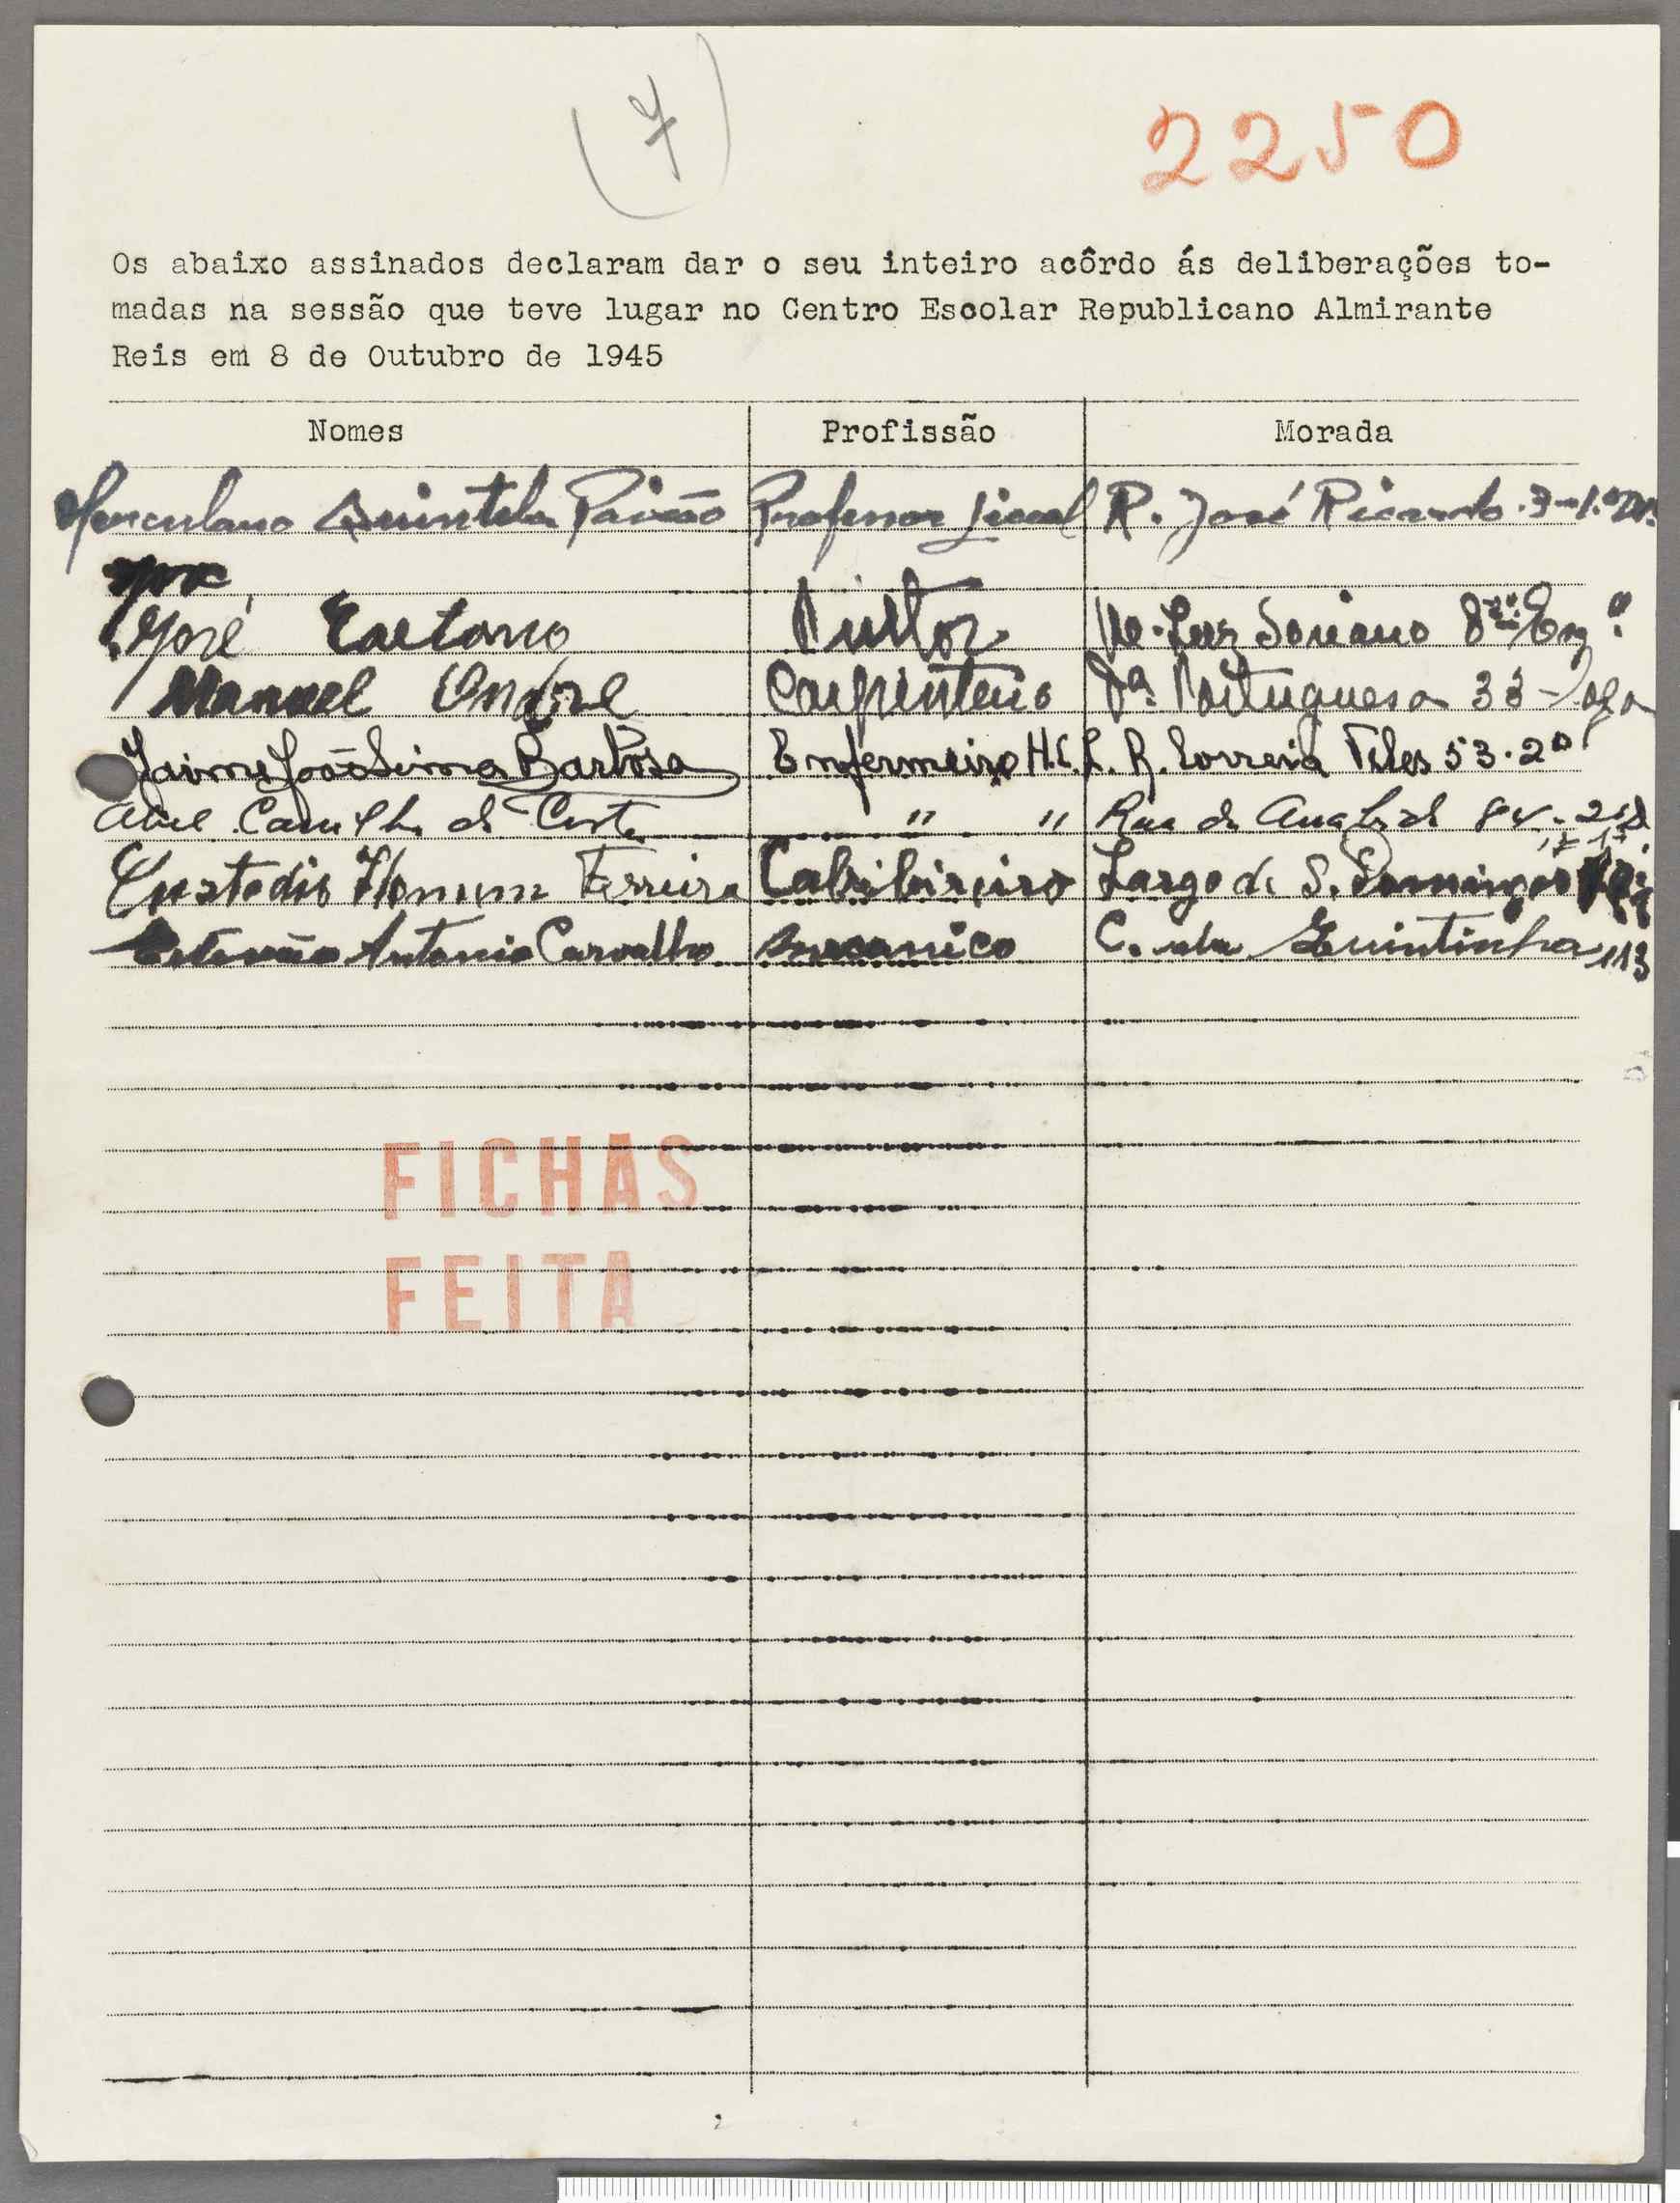 (7)
2250
Os abaixo assinados declaram dar o seu inteiro acôrdo ás deliberações to-
madas na sessão que teve lugar no Centro Escolar Republicano Almirante
Reis em 8 de Outubro de 1945
Nomes Profissão Morada
Herculano Quintela Professor Liceal R. José Ricardo 3-1.º D.
José Caetano Pintor Luz Soriano
Manuel André Carpinteiro Portuguesa 33 Loja
Jaime João Lima Barbosa Enfermeiro H.C.L. R. Correia Teles 53-2º
Abel Camilho da Costa " " Rua de
Custodio Homem Ferreira Largo de S. Domingos
Estevão Antonio Carvalho mecanico C. da Quintinha 113
FICHAS
FEITA